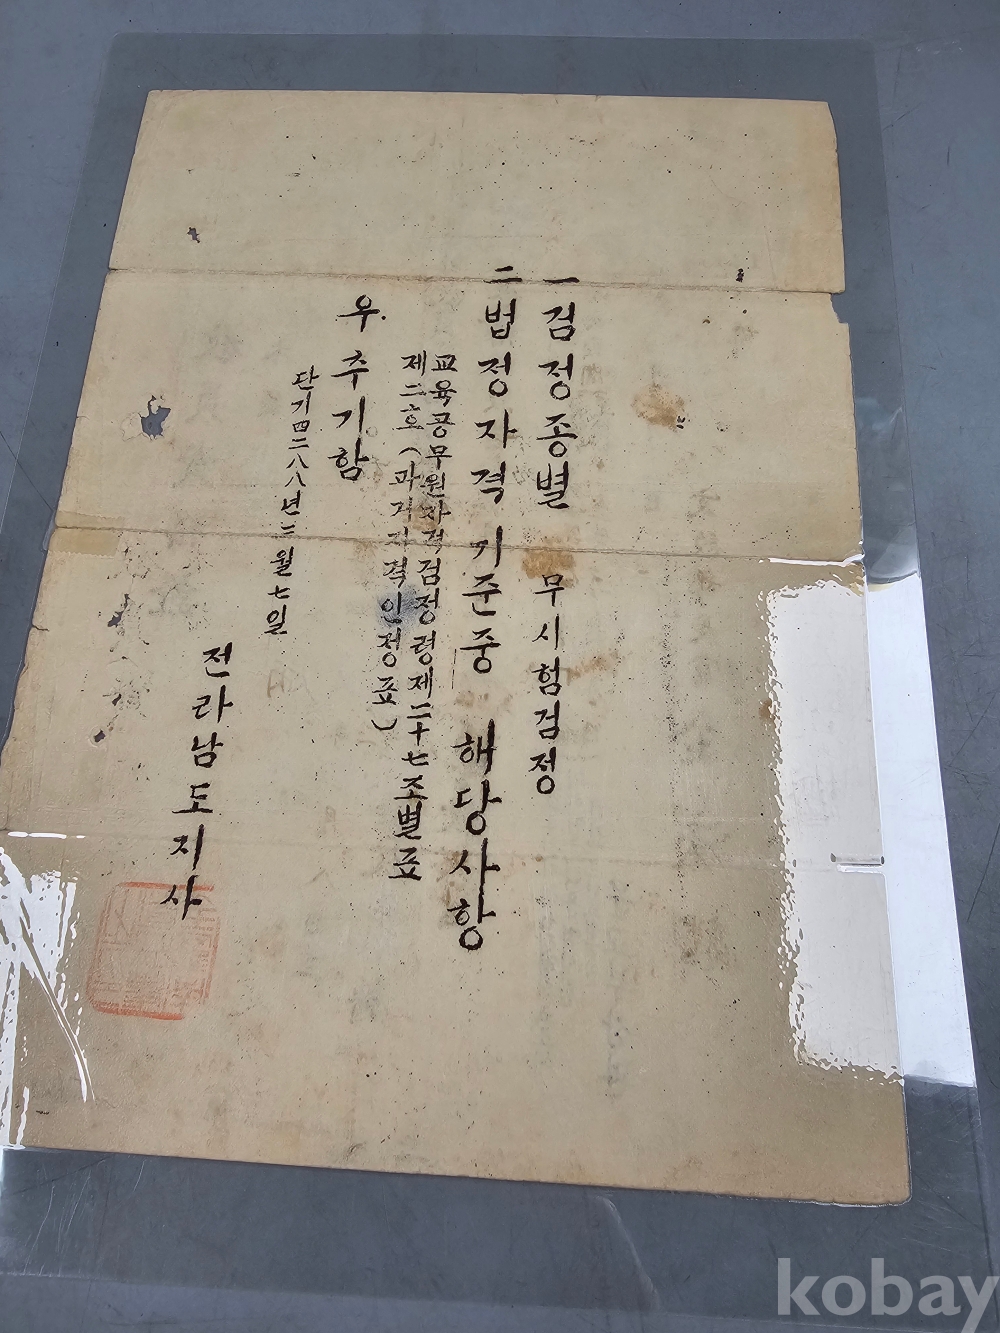 一 검정종별 무시험검정
二 법정자격기준중 해당사항
교육공무원자격검정령제二十七조별표
제二호(과거자격인정표)
우추기함
단기四二八八년三월七일
전라남도지사
kobay